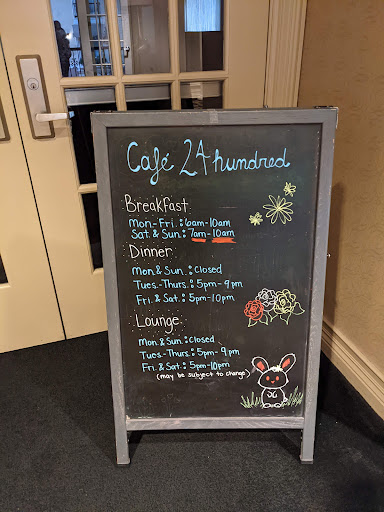 Café 24 hundred
Breakfast
Mon.-Fri.: 6am-10am
Sat. & Sun.: 7am-10am
Dinner
Mon. & Sun.: Closed
Tues.-Thurs.: 5pm-9pm
Fri. & Sat.: 5pm-10pm
Lounge
Mon. & Sun.: Closed
Tues.-Thurs.: 5pm-9pm
Fri. & Sat.: 5pm-10pm
(may be subject to change)